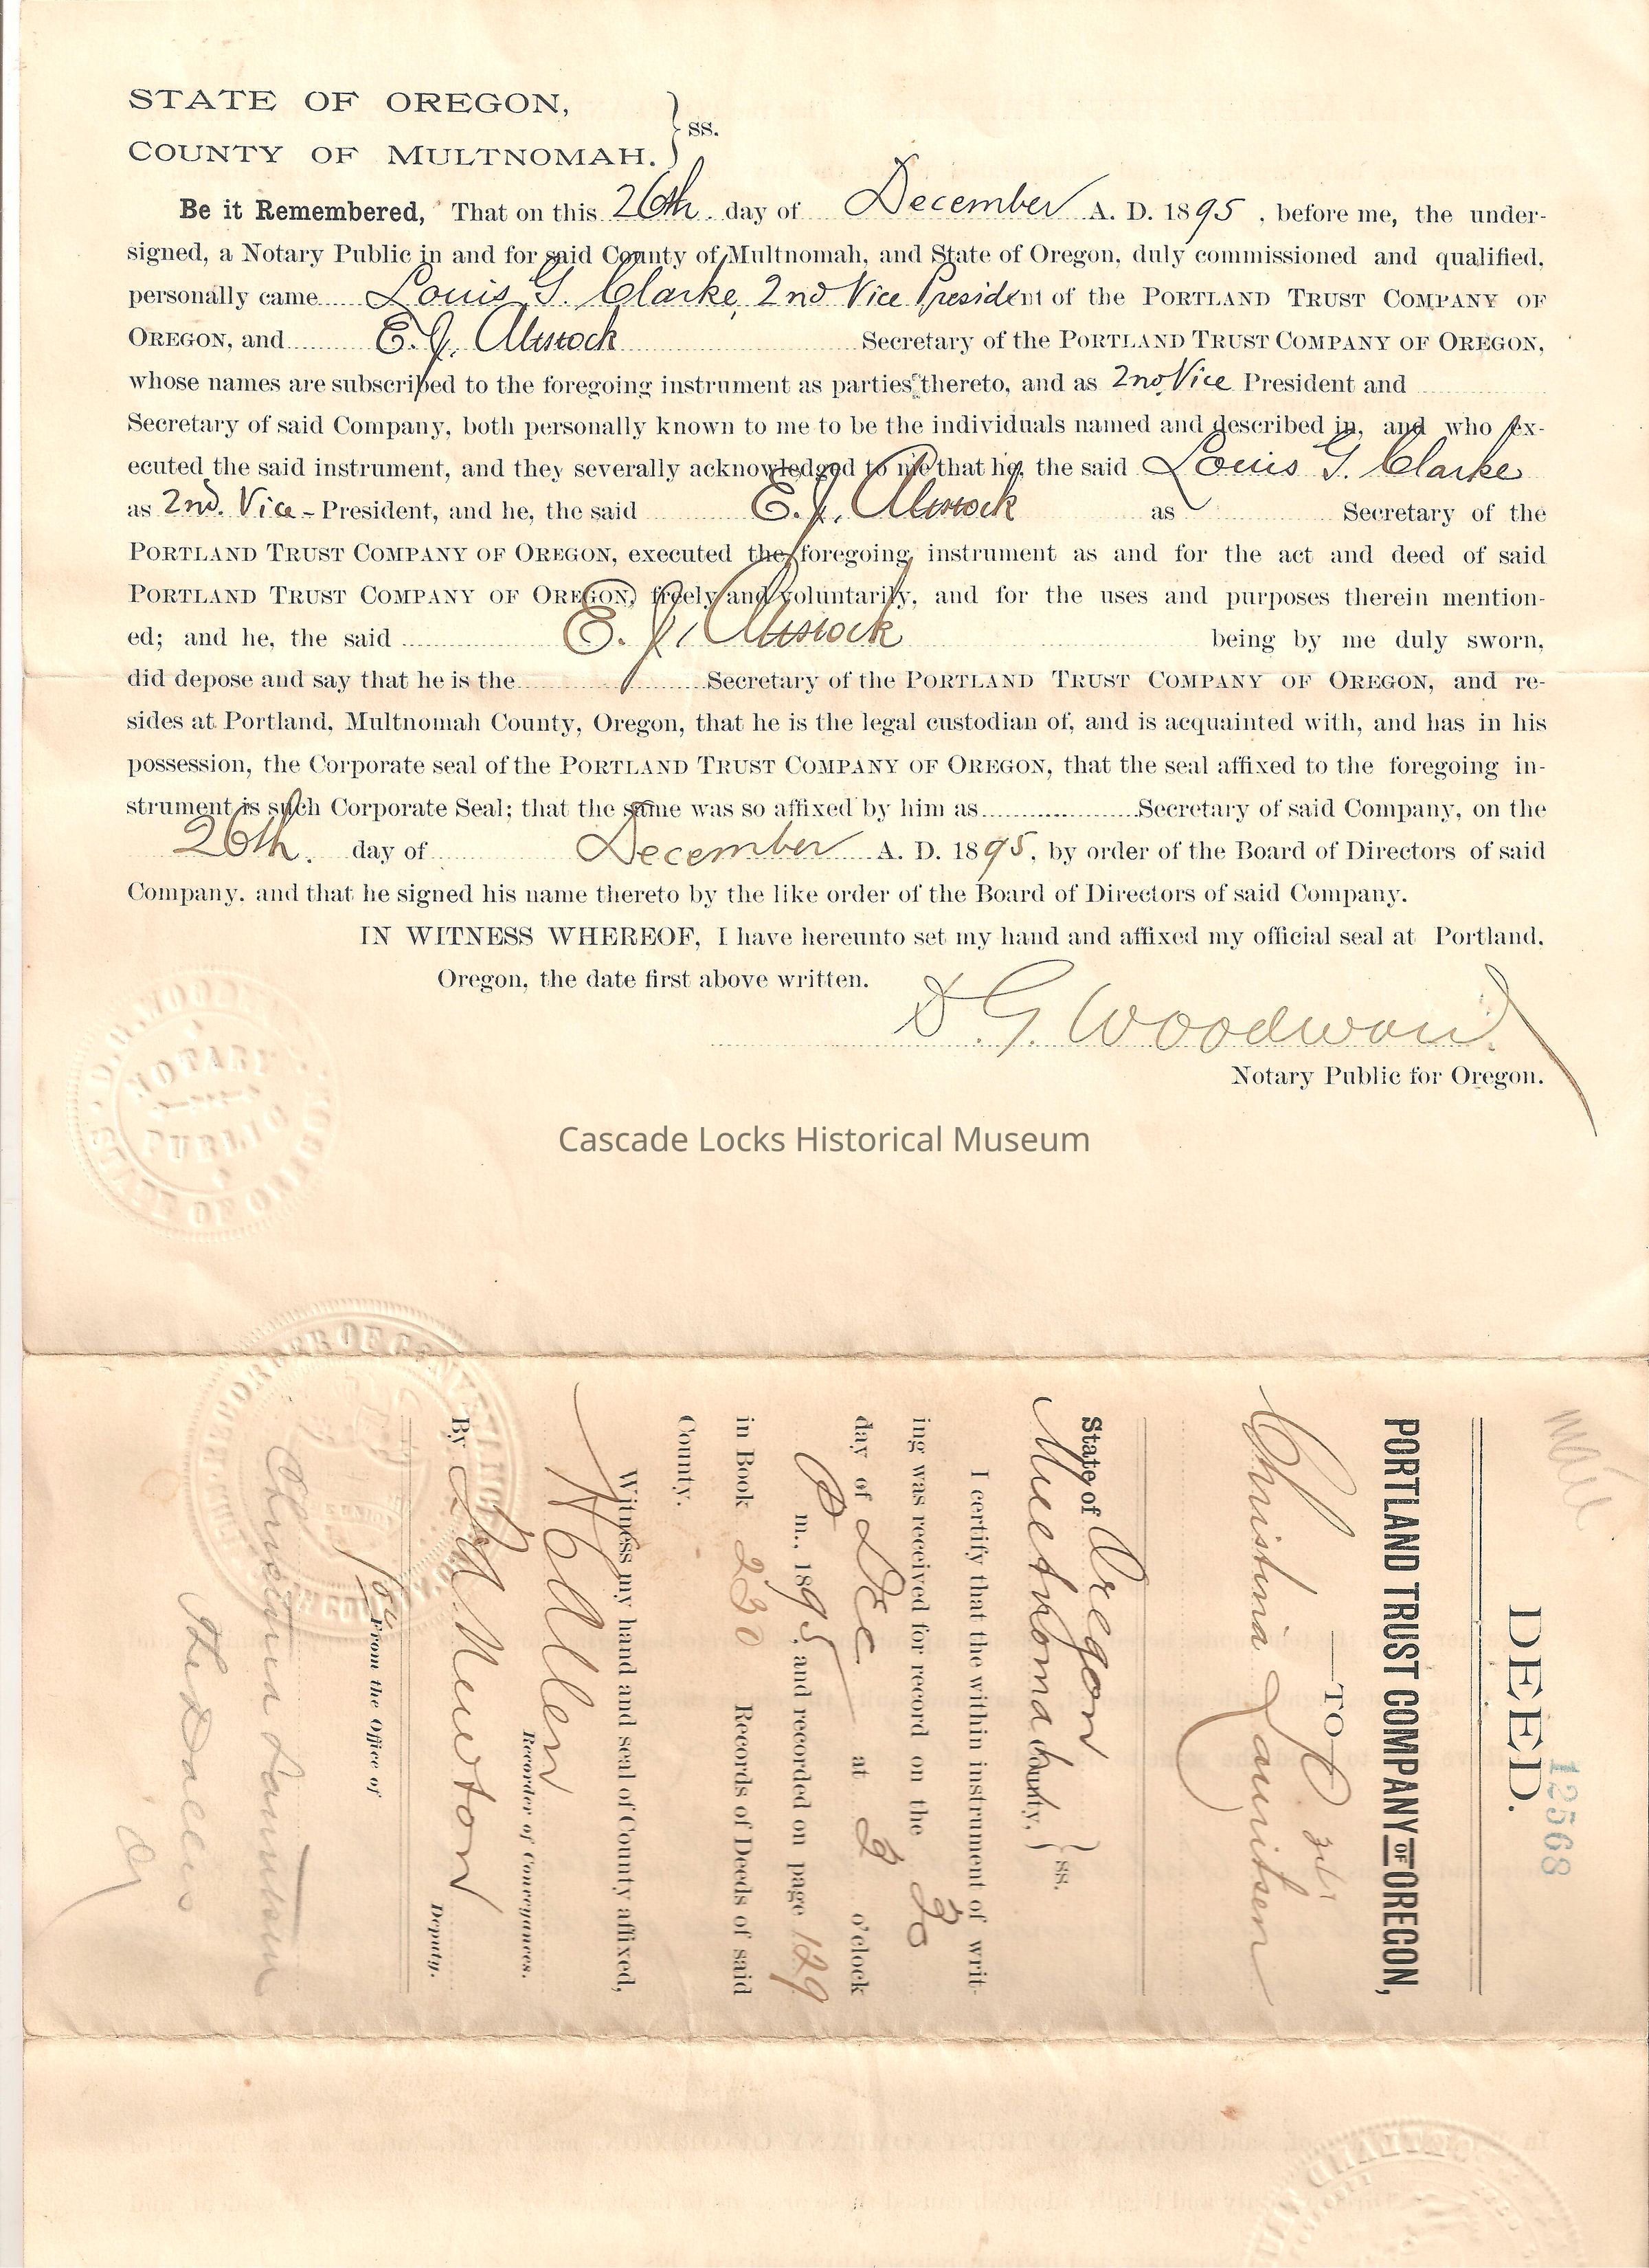 STATE OF OREGON,
COUNTY OF MULTNOMAH. } ss.
Be it Remembered, That on this 26th. day of December A. D. 1895, before me, the under-
signed, a Notary Public in and for said County of Multnomah, and State of Oregon, duly commissioned and qualified,
personally came Louis G. Clarke, 2nd Vice President of the PORTLAND TRUST COMPANY OF
OREGON, and E. J. Secretary of the PORTLAND TRUST COMPANY OF OREGON,
whose names are subscribed to the foregoing instrument as parties thereto, and as 2nd Vice President and
Secretary of said Company, both personally known to me to be the individuals named and described in, and who ex-
ecuted the said instrument, and they severally acknowledged to me that he, the said Louis G. Clarke
as 2nd. Vice-President, and he, the said E. J. as Secretary of the
PORTLAND TRUST COMPANY OF OREGON, executed the foregoing instrument as and for the act and deed of said
PORTLAND TRUST COMPANY OF OREGON, freely and voluntarily, and for the uses and purposes therein mention-
ed; and he, the said E. J. being by me duly sworn,
did depose and say that he is the Secretary of the PORTLAND TRUST COMPANY OF OREGON, and re-
sides at Portland, Multnomah County, Oregon, that he is the legal custodian of, and is acquainted with, and has in his
possession, the Corporate seal of the PORTLAND TRUST COMPANY OF OREGON, that the seal affixed to the foregoing in-
strument is such Corporate Seal; that the same was so affixed by him as Secretary of said Company, on the
26th. day of December A. D. 1895, by order of the Board of Directors of said
Company, and that he signed his name thereto by the like order of the Board of Directors of said Company.
IN WITNESS WHEREOF, I have hereunto set my hand and affixed my official seal at Portland,
Oregon, the date first above written.
D. G. Woodward
Notary Public for Oregon.
NOTARY PUBLIC
STATE OF OREGON
Cascade Locks Historical Museum
12568
DEED.
PORTLAND TRUST COMPANY OF OREGON,
—TO—
Christina Lauritsen
State of Oregon
Multnoma County, } ss.
I certify that the within instrument of writ-
ing was received for record on the 30
day of Dec at 3 o'clock
P m., 1895, and recorded on page 129
in Book 230 Records of Deeds of said
County.
Witness my hand and seal of County affixed,
Recorder of Conveyances.
By Newton
Deputy.
From the Office of
Christina Lauritsen
The Dalles
Or